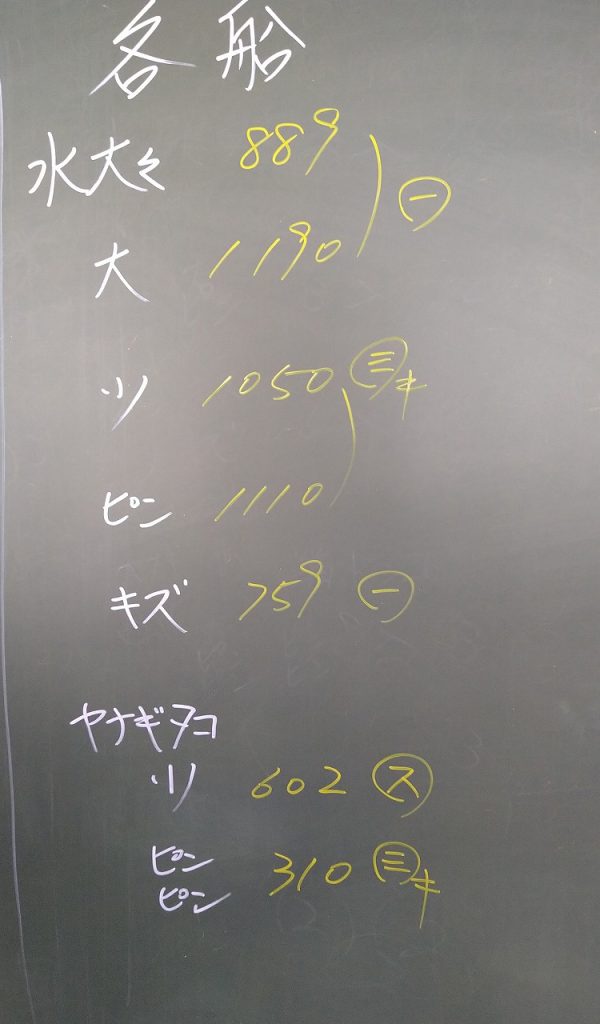 各船
水大々 889
㊀
大 1190
ツ 1050 ㊂キ
ピン 1110
キズ 759 ㊀
ヤナギダコ
ツ 602 ㋜
ピン 310 ㊂キ
ピン